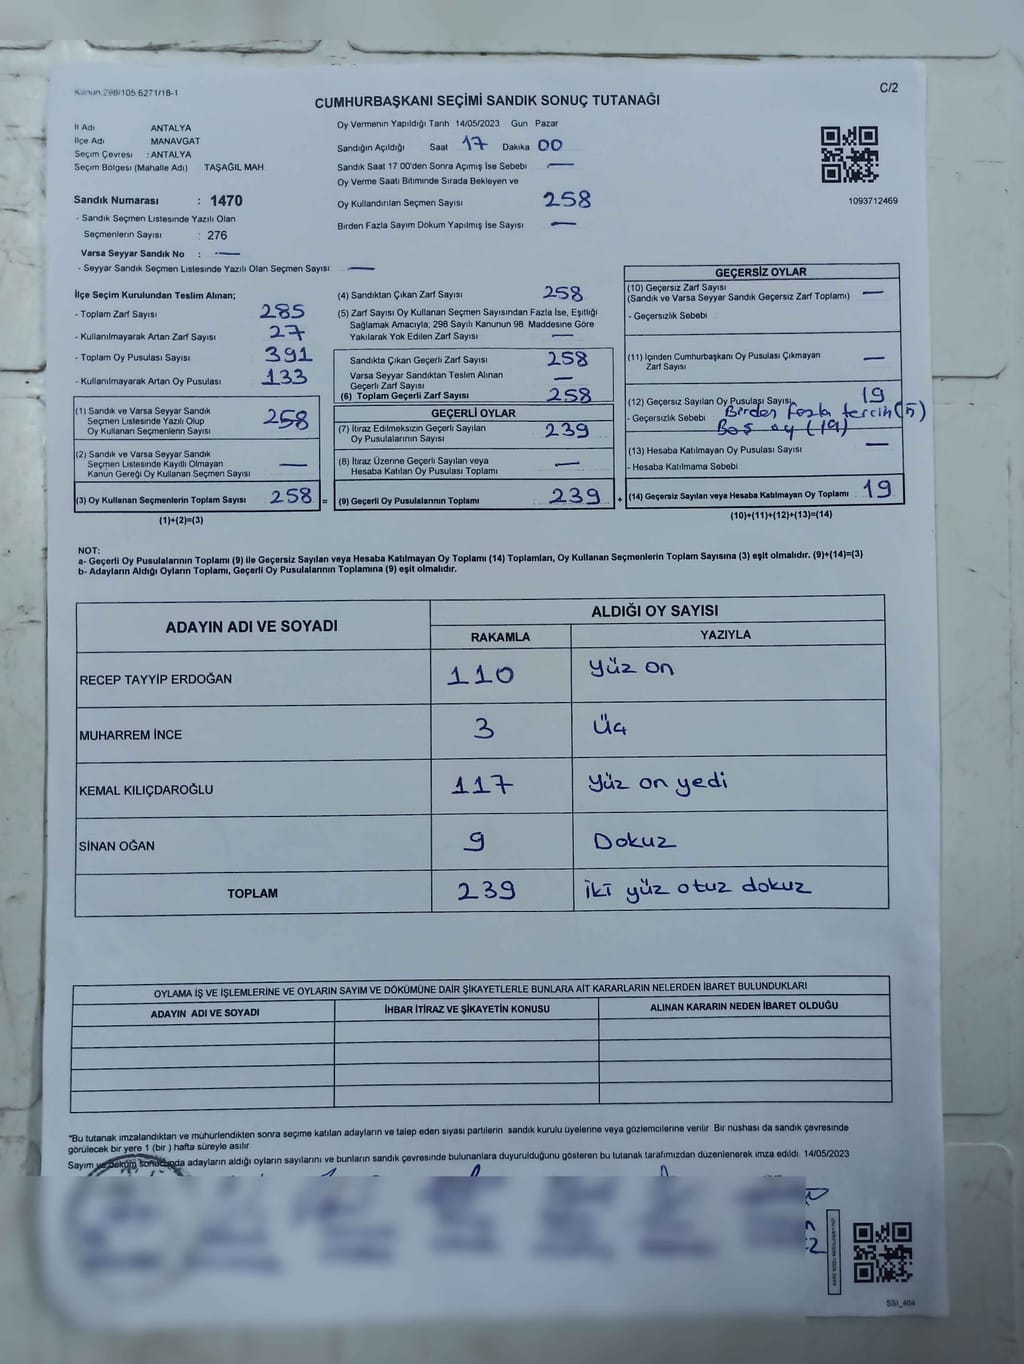 Kanun.298/105.6271/18-1
C/2
CUMHURBAŞKANI SEÇİMİ SANDIK SONUÇ TUTANAĞI
İl Adı ANTALYA
İlçe Adı MANAVGAT
Seçim Çevresi : ANTALYA
Seçim Bölgesi (Mahalle Adı) TAŞAĞIL MAH
Sandık Numarası : 1470
- Sandık Seçmen Listesinde Yazılı Olan
Seçmenlerin Sayısı : 276
Varsa Seyyar Sandık No : —
- Seyyar Sandık Seçmen Listesinde Yazılı Olan Seçmen Sayısı: —
Oy Vermenin Yapıldığı Tarih 14/05/2023 Gün Pazar
Sandığın Açıldığı Saat 17 Dakika 00
Sandık Saat 17 00'den Sonra Açımış İse Sebebi —
Oy Verme Saati Bitiminde Sırada Bekleyen ve
Oy Kullandırılan Seçmen Sayısı 258
Birden Fazla Sayım Döküm Yapılmış İse Sayısı —
1093712469
İlçe Seçim Kurulundan Teslim Alınan;
- Toplam Zarf Sayısı 285
- Kullanılmayarak Artan Zarf Sayısı 27
- Toplam Oy Pusulası Sayısı 391
- Kullanılmayarak Artan Oy Pusulası 133
(1) Sandık ve Varsa Seyyar Sandık
Seçmen Listesinde Yazılı Olup
Oy Kullanan Seçmenlerin Sayısı 258
(2) Sandık ve Varsa Seyyar Sandık
Seçmen Listesinde Kayıtlı Olmayan
Kanun Gereği Oy Kullanan Seçmen Sayısı —
(3) Oy Kullanan Seçmenlerin Toplam Sayısı 258 =
(1)+(2)=(3)
(4) Sandıktan Çıkan Zarf Sayısı 258
(5) Zarf Sayısı Oy Kullanan Seçmen Sayısından Fazla İse, Eşitliği
Sağlamak Amacıyla, 298 Sayılı Kanunun 98. Maddesine Göre
Yakılarak Yok Edilen Zarf Sayısı —
Sandıkta Çıkan Geçerli Zarf Sayısı 258
Varsa Seyyar Sandıktan Teslim Alınan
Geçerli Zarf Sayısı —
(6) Toplam Geçerli Zarf Sayısı 258
GEÇERLİ OYLAR
(7) İtiraz Edilmeksizin Geçerli Sayılan
Oy Pusulalarının Sayısı 239
(8) İtiraz Üzerine Geçerli Sayılan veya
Hesaba Katılan Oy Pusulası Toplamı —
(9) Geçerli Oy Pusulalarının Toplamı : 239 +
GEÇERSİZ OYLAR
(10) Geçersiz Zarf Sayısı
(Sandık ve Varsa Seyyar Sandık Geçersiz Zarf Toplamı) —
- Geçersizlik Sebebi :
(11) İçinden Cumhurbaşkanı Oy Pusulası Çıkmayan
Zarf Sayısı —
(12) Geçersiz Sayılan Oy Pusulası Sayısı 19
- Geçersizlik Sebebi Birden fazla tercih (5)
Boş oy (14)
(13) Hesaba Katılmayan Oy Pusulası Sayısı —
- Hesaba Katılmama Sebebi
(14) Geçersiz Sayılan veya Hesaba Katılmayan Oy Toplamı : 19
(10)+(11)+(12)+(13)=(14)
NOT:
a- Geçerli Oy Pusulalarının Toplamı (9) ile Geçersiz Sayılan veya Hesaba Katılmayan Oy Toplamı (14) Toplamları, Oy Kullanan Seçmenlerin Toplam Sayısına (3) eşit olmalıdır. (9)+(14)=(3)
b- Adayların Aldığı Oyların Toplamı, Geçerli Oy Pusulalarının Toplamına (9) eşit olmalıdır.
ADAYIN ADI VE SOYADI
ALDIĞI OY SAYISI
RAKAMLA YAZIYLA
RECEP TAYYİP ERDOĞAN 110 Yüz on
MUHARREM İNCE 3 Üç
KEMAL KILIÇDAROĞLU 117 Yüz on yedi
SİNAN OĞAN 9 Dokuz
TOPLAM 239 iki yüz otuz dokuz
OYLAMA İŞ VE İŞLEMLERİNE VE OYLARIN SAYIM VE DÖKÜMÜNE DAİR ŞİKAYETLERLE BUNLARA AİT KARARLARIN NELERDEN İBARET BULUNDUKLARI
ADAYIN ADI VE SOYADI İHBAR İTİRAZ VE ŞİKAYETİN KONUSU ALINAN KARARIN NEDEN İBARET OLDUĞU
*Bu tutanak imzalandıktan ve mühürlendikten sonra seçime katılan adayların ve talep eden siyasi partilerin sandık kurulu üyelerine veya gözlemcilerine verilir. Bir nüshası da sandık çevresinde
görülecek bir yere 1 (bir ) hafta süreyle asılır.
Sayım ve döküm sonucunda adayların aldığı oyların sayılarını ve bunların sandık çevresinde bulunanlara duyurulduğunu gösteren bu tutanak tarafımızdan düzenlenerek imza edildi. 14/05/2023
SSI_404